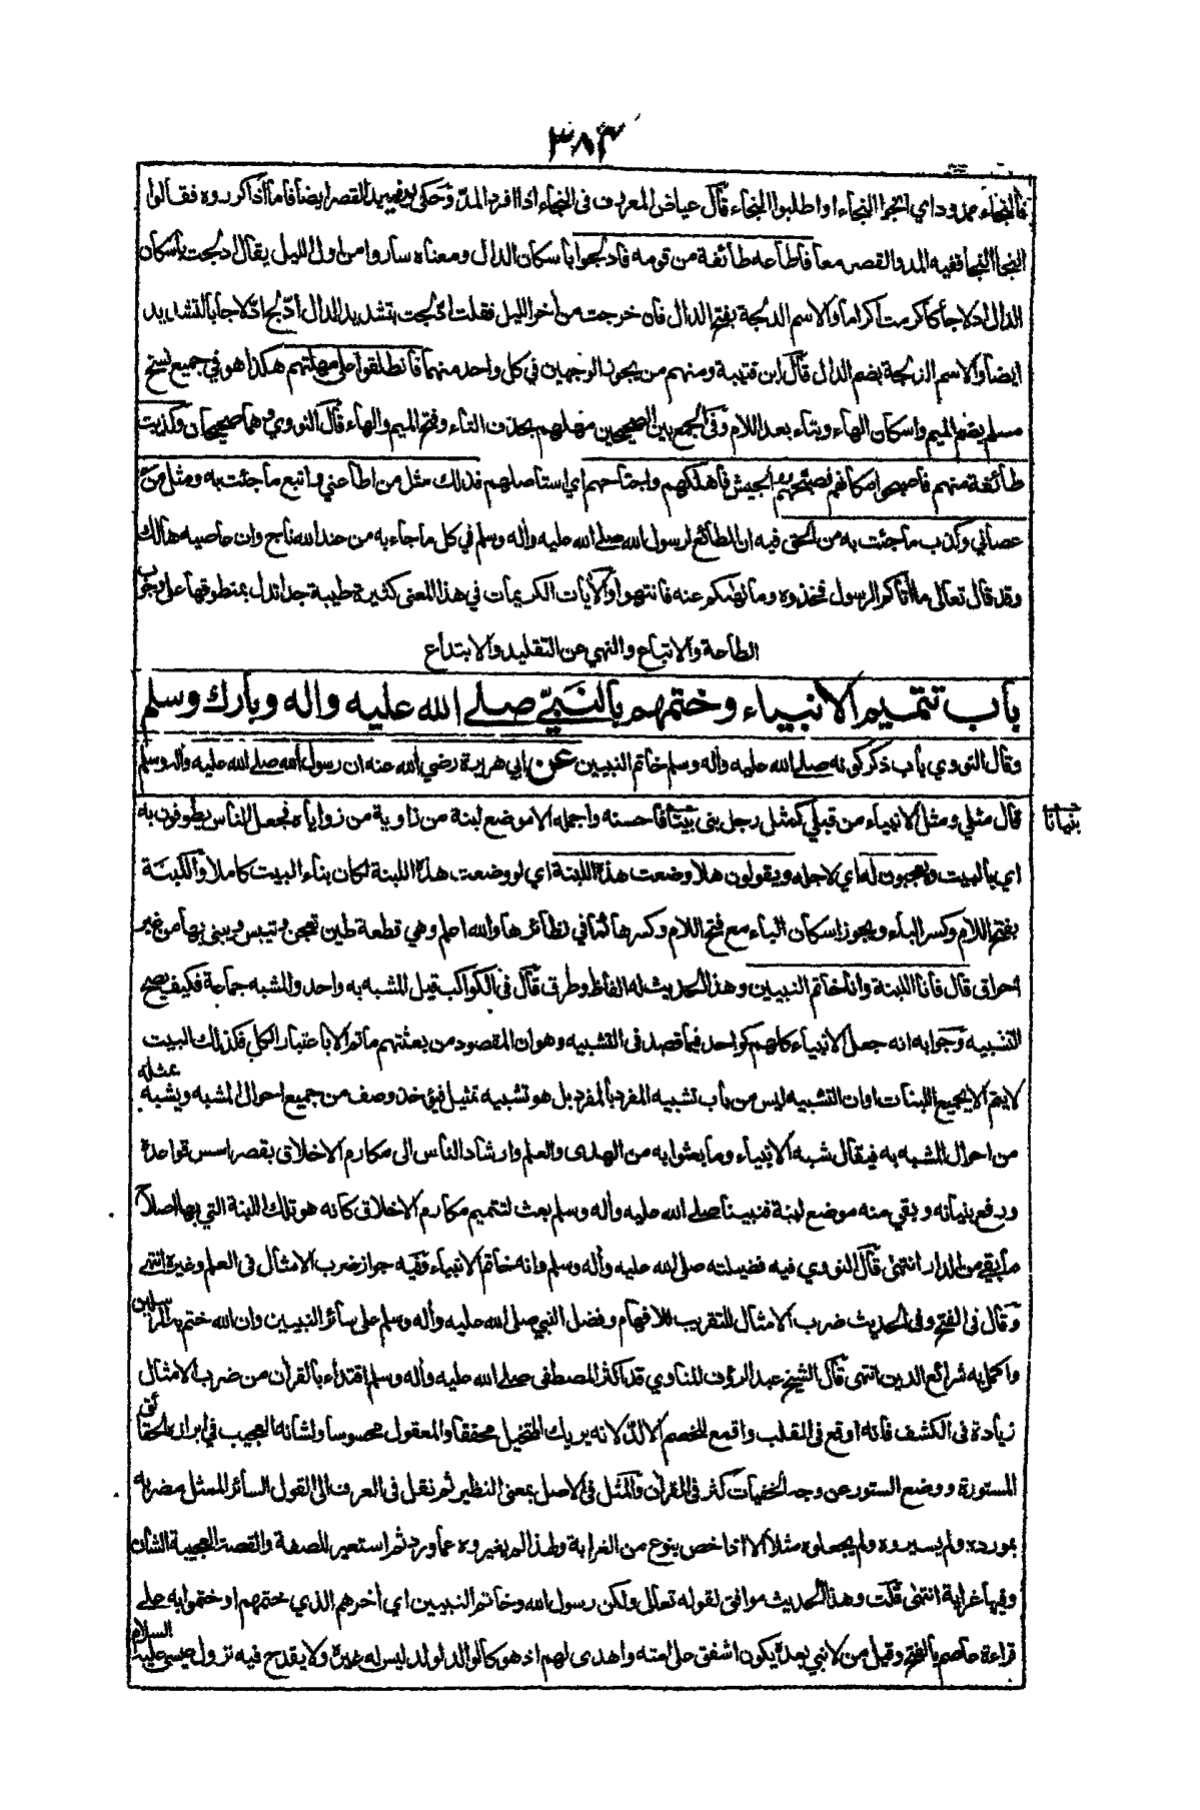 ٣٨٤
فالنجاء ممدود اي انجوا النجاء او اطلبوا النجاء قال عياض المعروف في النجاء اذا افرد المد وحكى ابو زيد القصر ايضا فاما اذا كرروه فقالوا
النجا النجا ففيه المد والقصر معا فأطاعه طائفة من قومه فادلجوا باسكان الدال ومعناه ساروا من اول الليل يقال ادلجت باسكان
الدال ادلاجا كاكرمت اكراما والاسم الدلجة بفتح الدال فان خرجت من اخر الليل فقلت ادلجت بتشديد الدال ادلج ادلاجا بالتشديد
ايضا والاسم الدلجة بضم الدال قال ابن قتيبة ومنهم من يجوز الوجهين في كل واحد منهما فانطلقوا على مهلتهم هكذا هو في جميع نسخ
مسلم بضم الميم واسكان الهاء وبتاء بعد اللام وفي الجمع بين الصحيحين مهلهم بحذف التاء وفتح الميم والهاء قال النووي وهما صحيحان وكذبت
طائفة منهم فاصبحوا مكانهم فصبحهم الجيش فاهلكهم واجتاحهم اي استاصلهم فذلك مثل من اطاعني واتبع ما جئت به ومثل من
عصاني وكذب ما جئت به من الحق فيه ان المطائع لرسول الله صلى الله عليه واله وسلم في كل ما جاء به من عند الله ناج وان عاصيه هالك
وقد قال تعالى ما اتاكم الرسول فخذوه وما نهىكم عنه فانتهوا والأيات الكريمات في هذا المعنى كثيرة طيبة جدا تدل بمنطوقها على وجوب
الطاعة والاتباع والنهي عن التقليد والابتداع
باب تتميم الانبياء وختمهم بالنبي صلى الله عليه واله وبارك وسلم
وقال النووي باب ذكر كونه صلى الله عليه واله وسلم خاتم النبيين عن ابي هريرة رضي الله عنه ان رسول الله صلى الله عليه واله وسلم
قال مثلي ومثل الانبياء من قبلي كمثل رجل بنى بيتا فاحسنه واجمله الا موضع لبنة من زاوية من زواياه فجعل الناس يطوفون به
بنيانا
اي بالبيت ويعجبون له اي لاجله ويقولون هلا وضعت هذه اللبنة اي لو وضعت هذه اللبنة لكان بناء البيت كاملا واللبنة
بفتح اللام وكسر الباء ويجوز اسكان الباء مع فتح اللام وكسرها كما في نظائرها والله اعلم وهي قطعة طين تعجن وتيبس ويبنى بها من غير
احراق قال فانا اللبنة وانا خاتم النبيين وهذا الحديث له الفاظ وطرق قال في الكواكب قيل المشبه به واحد والمشبه جماعة فكيف يصح
التشبيه وجوابه انه جعل الانبياء كلهم كواحد فيما قصد في التشبيه وهو ان المقصود من بعثتهم ما تم الا باعتبار الكل فكذلك البيت
لا يتم الا بجميع اللبنات او ان التشبيه ليس من باب تشبيه المفرد بالمفرد بل هو تشبيه تمثيل فيؤخذ وصف من جميع احوال المشبه ويشبه بمثله
من احوال المشبه به فيقال شبه الانبياء وما بعثوا به من الهدى والعلم وارشاد الناس الى مكارم الاخلاق بقصر اسس قواعده
ورفع بنيانه وبقي منه موضع لبنة فنبينا صلى الله عليه واله وسلم بعث لتتميم مكارم الاخلاق كانه هو تلك اللبنة التي بها اصلاح
ما بقي من الدار انتهى قال النووي فيه فضيلته صلى الله عليه واله وسلم وانه خاتم الانبياء وفيه جواز ضرب الامثال في العلم وغيره انتهى
وقال في الفتح وفي الحديث ضرب الامثال للتقريب للافهام وفضل النبي صلى الله عليه واله وسلم على سائر النبيين وان الله ختم به المرسلين
واكمل به شرائع الدين انتهى قال الشيخ عبد الرؤف المناوي قد اكثر المصطفى صلى الله عليه واله وسلم اقتداء بالقرأن من ضرب الامثال
زيادة في الكشف فانه اوقع في القلب واقمع للخصم الالد لانه يريك المتخيل محققا والمعقول محسوسا ولشانه العجيب في ابراز الحقائق
المستورة ورفع الستور عن وجه الخفيات كثر في القرأن والمثل في الاصل بمعنى النظير ثم نقل في العرف الى القول السائر الممثل مضربه
بمورده ولم يسيروه ولم يجعلوه مثلا الا اذا خص بنوع من الغرابة ولهذا لم يغيروه عما ورد ثم استعير للصفة والقصة العجيبة الشان
وفيها غرابة انتهى قلت وهذا الحديث موافق لقوله تعالى ولكن رسول الله وخاتم النبيين اي أخرهم الذي ختمهم او ختموا به على
قراءة عاصم بالفتح وقيل من لا نبي بعده يكون اشفق على امته واهدى لهم اذ هو كالوالد لولد ليس له غيره ولا يقدح فيه نزول عيسى عليه السلام